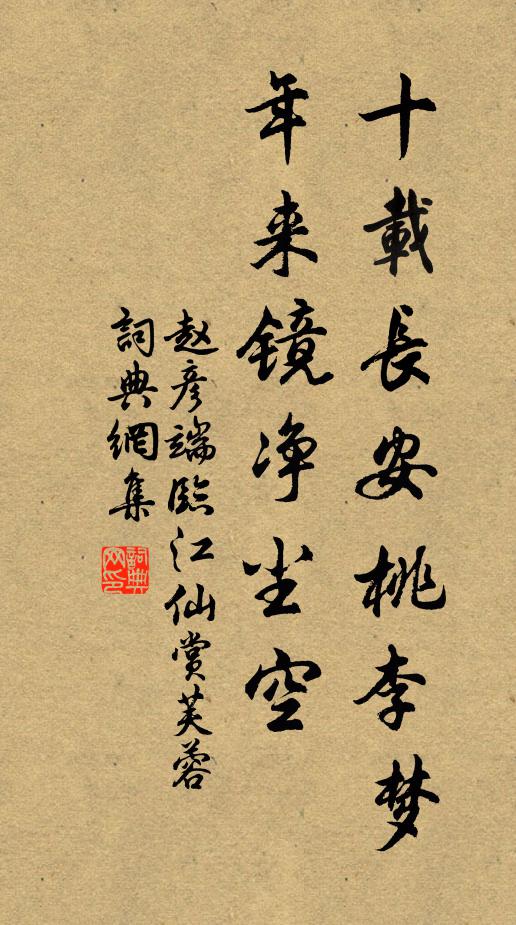 十載長安桃李梦
年来镜净尘空
赵彦端臨江仙赏芙蓉
詞典網集
詞典网印